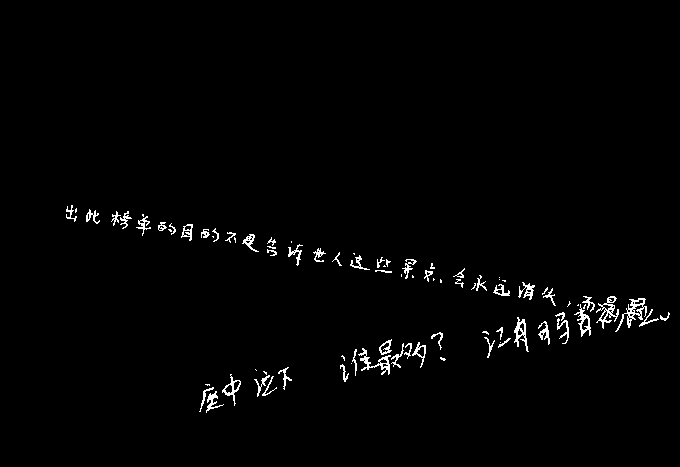 出此榜单的目的不是告诉世人这些景点、会永远消失,需
座中泣下 谁最多? 江州司马青衫湿。